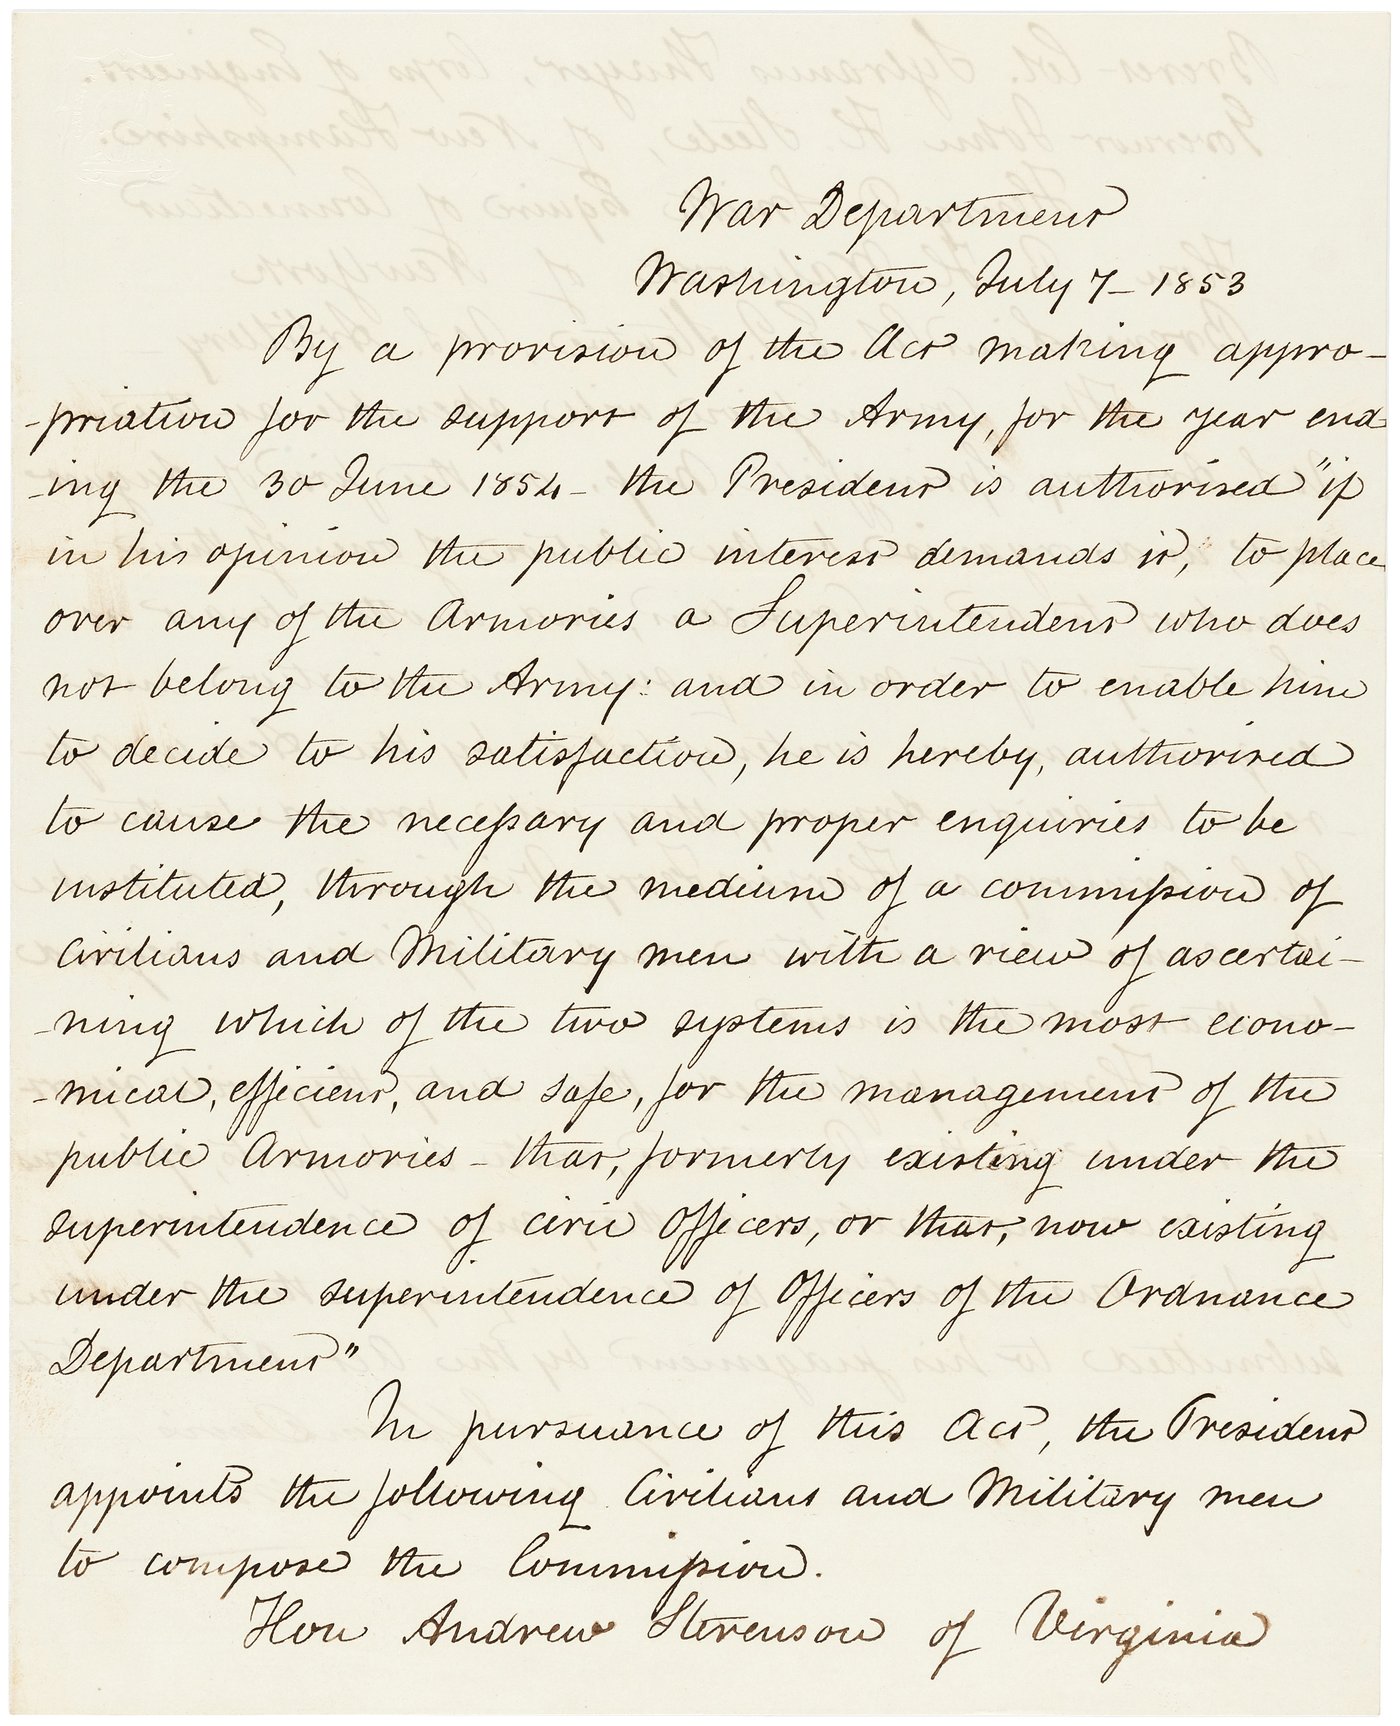 War Department
Washington, July 7 – 1853
By a provision of the Act making appro–
–priation for the support of the Army, for the year end
–ing the 30 June 1854 – the President is authorised "if
in his opinion the public interest demands it, to place
over any of the Armories a Superintendent who does
not belong to the Army: and in order to enable him
to decide to his satisfaction, he is hereby, authorised
to cause the necessary and proper enquiries to be
instituted, through the medium of a commission of
Civilians and Military men with a view of ascertai–
–ning which of the two systems is the most econo–
–mical, efficient, and safe, for the management of the
public Armories – that, formerly existing under the
superintendence of civic officers, or that, now existing
under the superintendence of Officers of the Ordnance
Department"
In pursuance of this Act, the President
appoints the following Civilians and Military men
to compose the Commission.
Hon Andrew Stevenson of Virginia